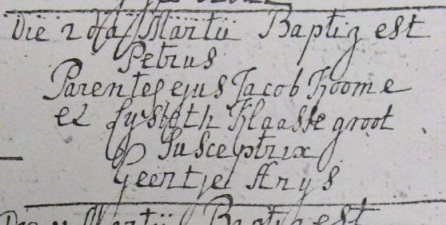 Die 2 da Martii Baptiz est
Petrus
Parentes ejus Jacob Koome
et Lysbeth Klaasse groot
Susceptrix
Geertje Arys
Martii Baptiz est